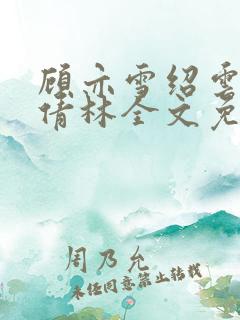 顾亦雪绍雲
倩林全文免
周乃允
未经同意禁止转载